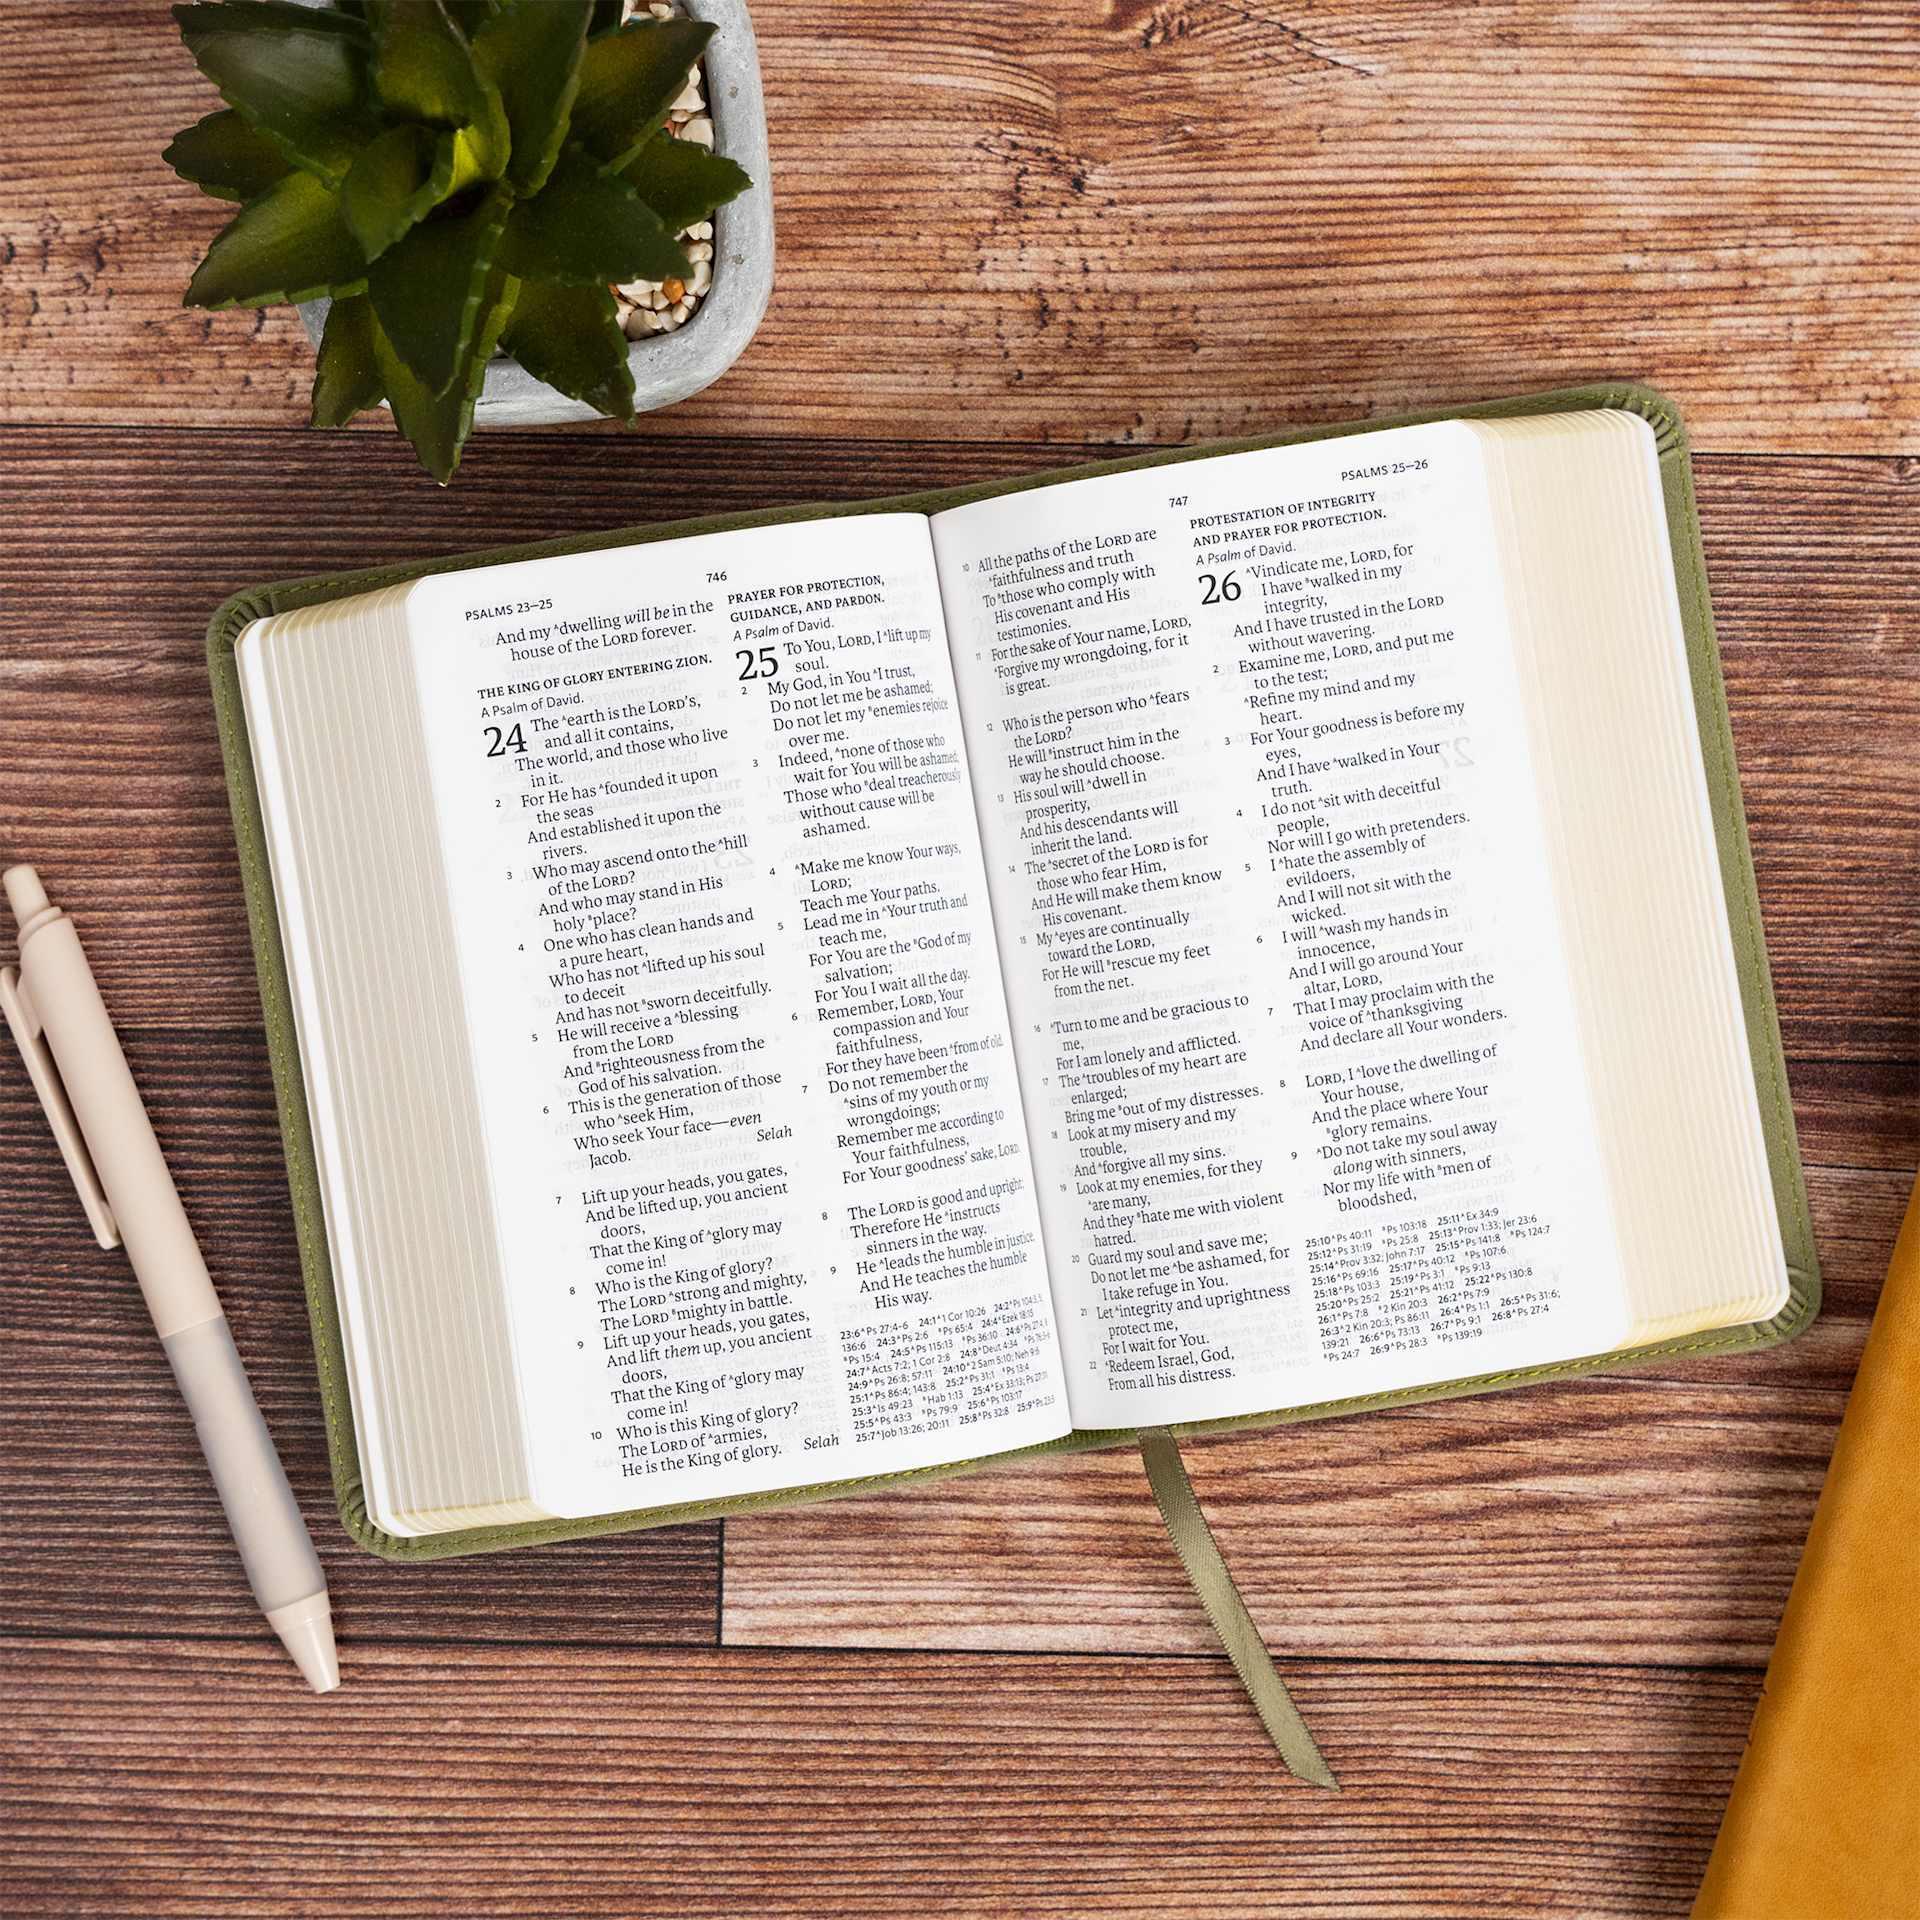 746
PSALMS 23–25
And my ᴬdwelling will be in the
house of the LORD forever.
THE KING OF GLORY ENTERING ZION.
A Psalm of David.
24 The ᴬearth is the LORD’s,
and all it contains,
The world, and those who live
in it.
2 For He has ᴬfounded it upon
the seas
And established it upon the
rivers.
3 Who may ascend onto the ᴬhill
of the LORD?
And who may stand in His
holy ᴮplace?
4 One who has clean hands and
a pure heart,
Who has not ᴬlifted up his soul
to deceit
And has not ᴮsworn deceitfully.
5 He will receive a ᴬblessing
from the LORD
And ᴮrighteousness from the
God of his salvation.
6 This is the generation of those
who ᴬseek Him,
Who seek Your face—even
Jacob. Selah
7 Lift up your heads, you gates,
And be lifted up, you ancient
doors,
That the King of ᴬglory may
come in!
8 Who is the King of glory?
The LORD ᴬstrong and mighty,
The LORD ᴮmighty in battle.
9 Lift up your heads, you gates,
And lift them up, you ancient
doors,
That the King of ᴬglory may
come in!
10 Who is this King of glory?
The LORD of ᴬarmies,
He is the King of glory. Selah
PRAYER FOR PROTECTION,
GUIDANCE, AND PARDON.
A Psalm of David.
25 To You, LORD, I ᴬlift up my
soul.
2 My God, in You ᴬI trust,
Do not let me be ashamed;
Do not let my ᴮenemies rejoice
over me.
3 Indeed, ᴬnone of those who
wait for You will be ashamed;
Those who ᴮdeal treacherously
without cause will be
ashamed.
4 ᴬMake me know Your ways,
LORD;
Teach me Your paths.
5 Lead me in ᴬYour truth and
teach me,
For You are the ᴮGod of my
salvation;
For You I wait all the day.
6 Remember, LORD, Your
compassion and Your
faithfulness,
For they have been ᴬfrom of old.
7 Do not remember the
ᴬsins of my youth or my
wrongdoings;
Remember me according to
Your faithfulness,
For Your goodness’ sake, LORD.
8 The LORD is good and upright;
Therefore He ᴬinstructs
sinners in the way.
9 He ᴬleads the humble in justice,
And He teaches the humble
His way.
23:6 ᴬPs 27:4-6 24:1 ᴬ1 Cor 10:26 24:2 ᴬPs 104:3, 5;
136:6 24:3 ᴬPs 2:6 ᴮPs 65:4 24:4 ᴬEzek 18:15
ᴮPs 15:4 24:5 ᴬPs 115:13 ᴮPs 36:10 24:6 ᴬPs 27:4, 8
24:7 ᴬActs 7:2; 1 Cor 2:8 24:8 ᴬDeut 4:34 ᴮPs 76:3-6
24:9 ᴬPs 26:8; 57:11 24:10 ᴬ2 Sam 5:10; Neh 9:6
25:1 ᴬPs 86:4; 143:8 25:2 ᴬPs 31:1 ᴮPs 13:4
25:3 ᴬIs 49:23 ᴮHab 1:13 25:4 ᴬEx 33:13; Ps 27:11
25:5 ᴬPs 43:3 ᴮPs 79:9 25:6 ᴬPs 103:17
25:7 ᴬJob 13:26; 20:11 25:8 ᴬPs 32:8 25:9 ᴬPs 23:3
747
PSALMS 25–26
10 All the paths of the LORD are
ᴬfaithfulness and truth
To ᴮthose who comply with
His covenant and His
testimonies.
11 For the sake of Your name, LORD,
ᴬForgive my wrongdoing, for it
is great.
12 Who is the person who ᴬfears
the LORD?
He will ᴮinstruct him in the
way he should choose.
13 His soul will ᴬdwell in
prosperity,
And his descendants will
inherit the land.
14 The ᴬsecret of the LORD is for
those who fear Him,
And He will make them know
His covenant.
15 My ᴬeyes are continually
toward the LORD,
For He will ᴮrescue my feet
from the net.
16 ᴬTurn to me and be gracious to
me,
For I am lonely and afflicted.
17 The ᴬtroubles of my heart are
enlarged;
Bring me ᴮout of my distresses.
18 Look at my misery and my
trouble,
And ᴬforgive all my sins.
19 Look at my enemies, for they
ᴬare many,
And they ᴮhate me with violent
hatred.
20 Guard my soul and save me;
Do not let me ᴬbe ashamed, for
I take refuge in You.
21 Let ᴬintegrity and uprightness
protect me,
For I wait for You.
22 ᴬRedeem Israel, God,
From all his distress.
PROTESTATION OF INTEGRITY
AND PRAYER FOR PROTECTION.
A Psalm of David.
26 ᴬVindicate me, LORD, for
I have ᴮwalked in my
integrity,
And I have trusted in the LORD
without wavering.
2 Examine me, LORD, and put me
to the test;
ᴬRefine my mind and my
heart.
3 For Your goodness is before my
eyes,
And I have ᴬwalked in Your
truth.
4 I do not ᴬsit with deceitful
people,
Nor will I go with pretenders.
5 I ᴬhate the assembly of
evildoers,
And I will not sit with the
wicked.
6 I will ᴬwash my hands in
innocence,
And I will go around Your
altar, LORD,
7 That I may proclaim with the
voice of ᴬthanksgiving
And declare all Your wonders.
8 LORD, I ᴬlove the dwelling of
Your house,
And the place where Your
ᴮglory remains.
9 ᴬDo not take my soul away
along with sinners,
Nor my life with ᴮmen of
bloodshed,
25:10 ᴬPs 40:11 ᴮPs 103:18 25:11 ᴬEx 34:9
25:12 ᴬPs 31:19 ᴮPs 25:8 25:13 ᴬProv 1:33; Jer 23:6
25:14 ᴬProv 3:32; John 7:17 25:15 ᴬPs 141:8 ᴮPs 124:7
25:16 ᴬPs 69:16 25:17 ᴬPs 40:12 ᴮPs 107:6
25:18 ᴬPs 103:3 25:19 ᴬPs 3:1 ᴮPs 9:13
25:20 ᴬPs 25:2 25:21 ᴬPs 41:12 25:22 ᴬPs 130:8
26:1 ᴬPs 7:8 ᴮ2 Kin 20:3 26:2 ᴬPs 7:9
26:3 ᴬ2 Kin 20:3; Ps 86:11 26:4 ᴬPs 1:1 26:5 ᴬPs 31:6;
139:21 26:6 ᴬPs 73:13 26:7 ᴬPs 9:1 26:8 ᴬPs 27:4
ᴮPs 24:7 26:9 ᴬPs 28:3 ᴮPs 139:19